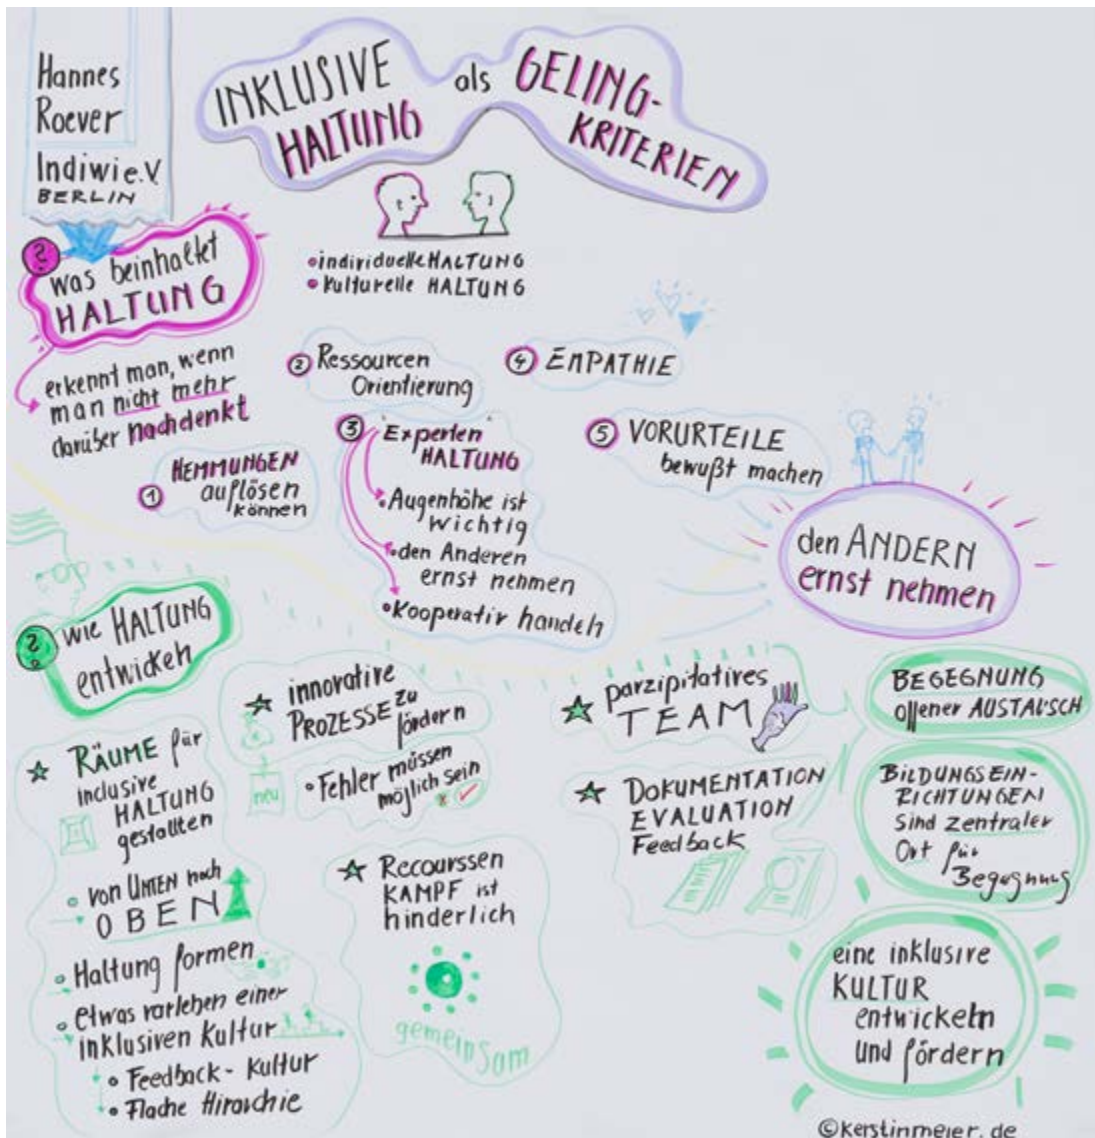 Hannes
Roever
Indiwi e.V
BERLIN
INKLUSIVE
HALTUNG
als
GELING-
KRITERIEN
• individuelle HALTUNG
• Kulturelle HALTUNG
?
was beinhaltet
HALTUNG
erkennt man, wenn
man nicht mehr
darüber nachdenkt
① HEMMUNGEN
auflösen
können
② Ressourcen
Orientierung
③ "Experten"
HALTUNG
• Augenhöhe ist
wichtig
• den Anderen
ernst nehmen
• Kooperativ handeln
④ EMPATHIE
⑤ VORURTEILE
bewußt machen
den ANDERN
ernst nehmen
?
wie HALTUNG
entwickeln
RÄUME für
inclusive
HALTUNG
gestallten
• von UNTEN nach
OBEN
• Haltung formen
• etwas vorleben einer
inklusiven Kultur
• Feedback - Kultur
• Flache Hirarchie
innovative
PROZESSE zu
fördern
neu
• Fehler müssen
möglich sein
Recourssen
KAMPF ist
hinderlich
gemeinsam
parzipitatives
TEAM
DOKUMENTATION
EVALUATION
Feedback
BEGEGNUNG
offener AUSTAUSCH
BILDUNGSEIN-
RICHTUNGEN
Sind zentraler
Ort für
Begegnung
eine inklusive
KULTUR
entwickeln
und fördern
©kerstinmeier.de